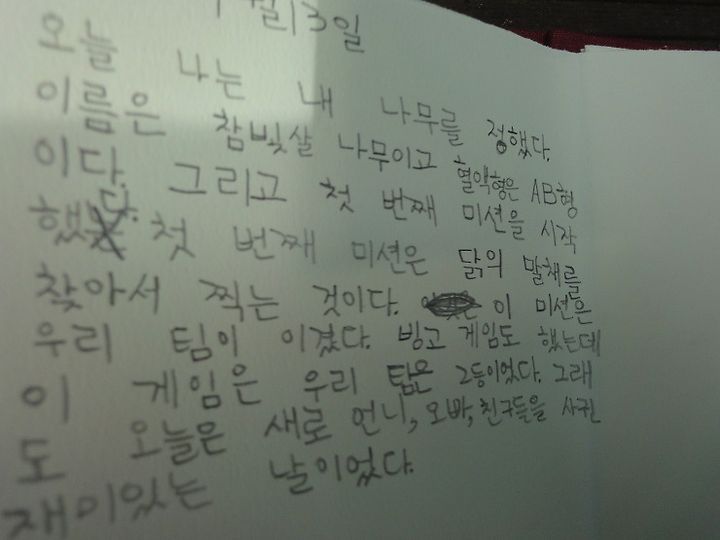 월 13일
오늘 나는 내 나무를 정했다.
이름은 참빗살 나무이고 혈액형은 AB형
이다. 그리고 첫 번째 미션을 시작
했다. 첫 번째 미션은 닭의 말채를
찾아서 찍는 것이다. 이 미션은
우리 팀이 이겼다. 빙고 게임도 했는데
이 게임은 우리 팀은 2등이었다. 그래
도 오늘은 새로 언니, 오빠, 친구들을 사귄
재미있는 날이었다.